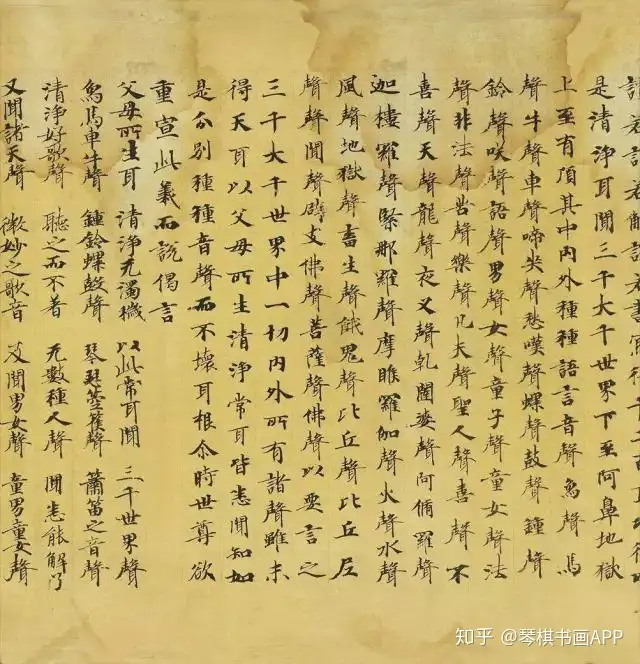 是清淨耳聞三千大千世界下至阿鼻地獄
上至有頂其中內外種種語言音聲象聲馬
聲牛聲車聲啼哭聲愁嘆聲螺聲鼓聲鍾聲
鈴聲咲聲語聲男聲女聲童子聲童女聲法
聲非法聲苦聲樂聲凡夫聲聖人聲喜聲不
喜聲天聲龍聲夜叉聲乹闥婆聲阿脩羅聲
迦樓羅聲緊那羅聲摩睺羅伽聲火聲水聲
風聲地獄聲畜生聲餓鬼聲比丘聲比丘尼
聲聲聞聲辟支佛聲菩薩聲佛聲以要言之
三千大千世界中一切內外所有諸聲雖未
得天耳以父母所生清淨常耳皆悉聞知如
是分別種種音聲而不壞耳根尒時世尊欲
重宣此義而說偈言
父母所生耳 清淨无濁穢 以此常耳聞 三千世界聲
象馬車牛聲 鍾鈴螺鼓聲 琴瑟箜篌聲 簫笛之音聲
清淨好歌聲 聽之而不著 无數種人聲 聞悉能解了
又聞諸天聲 微妙之歌音 及聞男女聲 童男童女聲
知乎 @琴棋书画APP